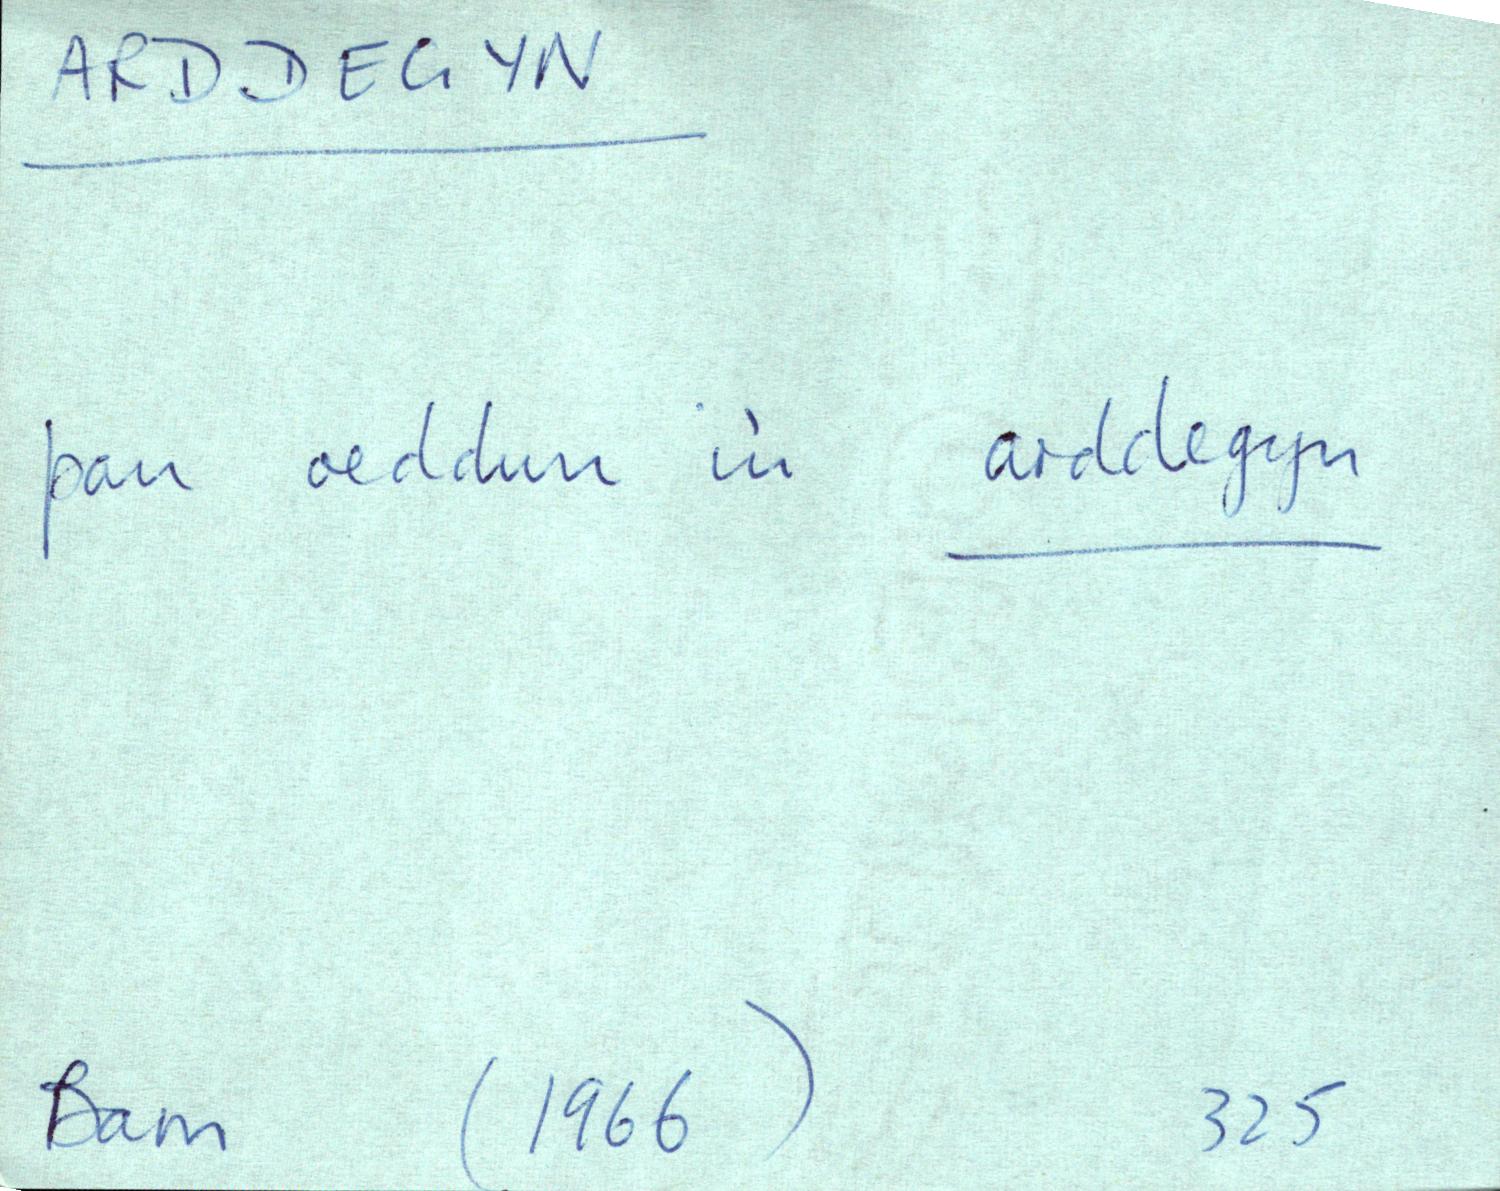 ARDDEGYN
pan oeddun i'n arddegyn
Barn (1966) 325